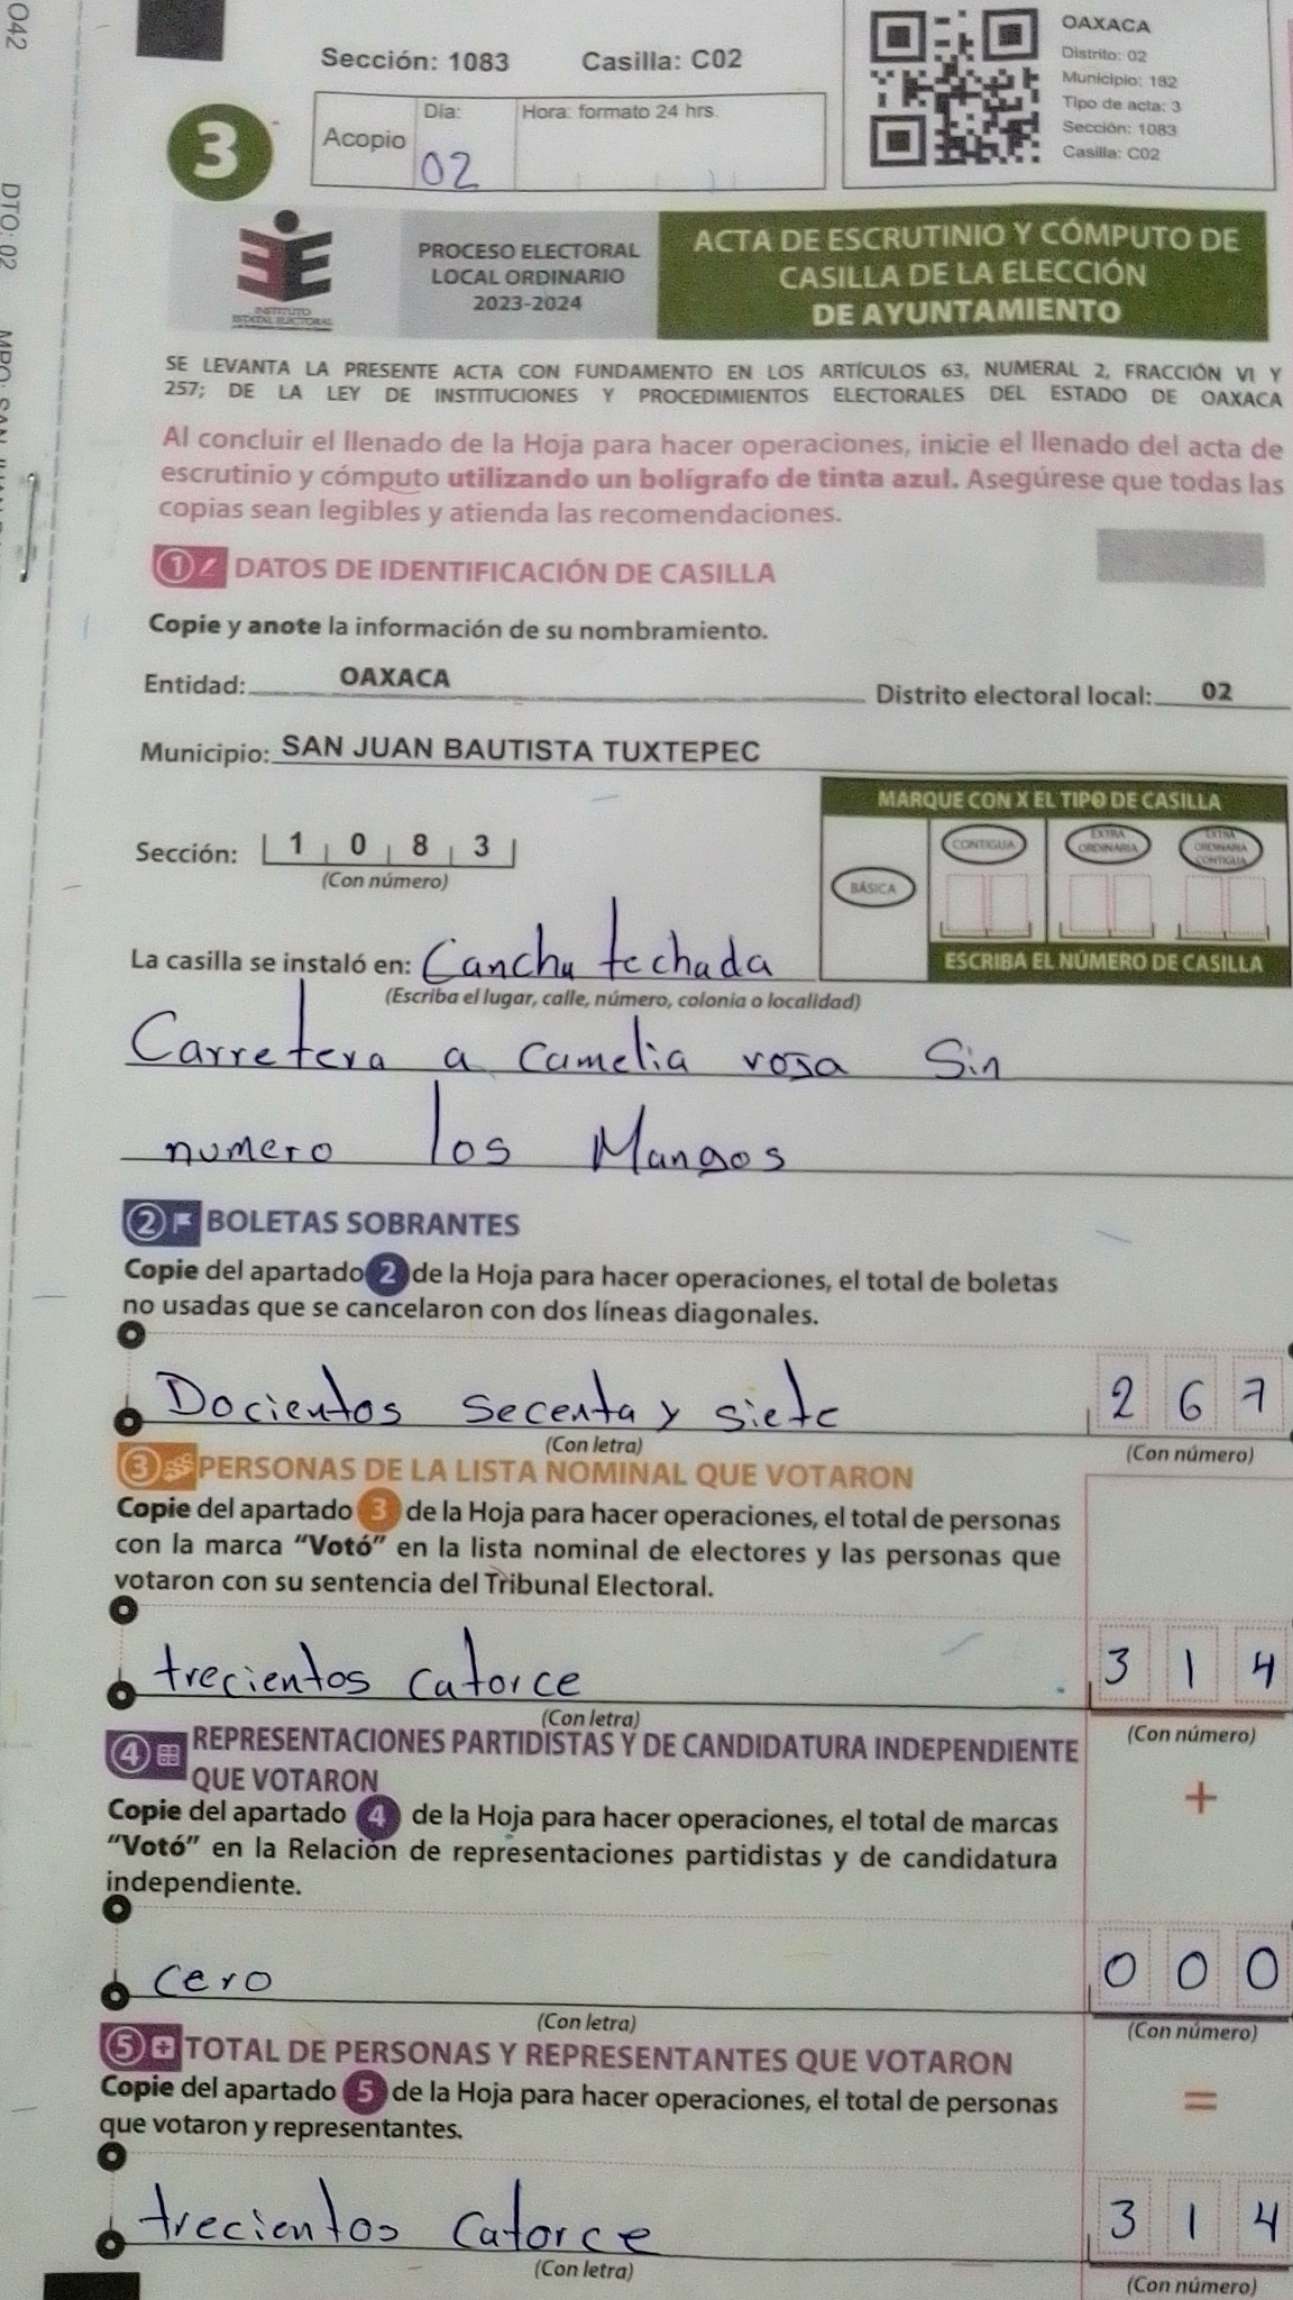 042
DTO: 02
Sección: 1083 Casilla: C02
OAXACA
Distrito: 02
Municipio: 182
Tipo de acta: 3
Sección: 1083
Casilla: C02
3
Acopio
Día:
02
Hora: formato 24 hrs.
INSTITUTO
ESTATAL ELECTORAL
PROCESO ELECTORAL
LOCAL ORDINARIO
2023-2024
ACTA DE ESCRUTINIO Y CÓMPUTO DE
CASILLA DE LA ELECCIÓN
DE AYUNTAMIENTO
SE LEVANTA LA PRESENTE ACTA CON FUNDAMENTO EN LOS ARTÍCULOS 63, NUMERAL 2, FRACCIÓN VI Y
257; DE LA LEY DE INSTITUCIONES Y PROCEDIMIENTOS ELECTORALES DEL ESTADO DE OAXACA
Al concluir el llenado de la Hoja para hacer operaciones, inicie el llenado del acta de
escrutinio y cómputo utilizando un bolígrafo de tinta azul. Asegúrese que todas las
copias sean legibles y atienda las recomendaciones.
1 DATOS DE IDENTIFICACIÓN DE CASILLA
Copie y anote la información de su nombramiento.
Entidad: OAXACA Distrito electoral local: 02
Municipio: SAN JUAN BAUTISTA TUXTEPEC
MARQUE CON X EL TIPO DE CASILLA
BÁSICA
CONTIGUA
EXTRA
ORDINARIA
EXTRA
ORDINARIA
CONTIGUA
ESCRIBA EL NÚMERO DE CASILLA
Sección: 1 0 8 3
(Con número)
La casilla se instaló en: Cancha techada
(Escriba el lugar, calle, número, colonia o localidad)
Carretera a camelia rosa Sin
numero los Mangos
2 BOLETAS SOBRANTES
Copie del apartado 2 de la Hoja para hacer operaciones, el total de boletas
no usadas que se cancelaron con dos líneas diagonales.
Docientos secenta y siete 2 6 7
(Con letra) (Con número)
3 PERSONAS DE LA LISTA NOMINAL QUE VOTARON
Copie del apartado 3 de la Hoja para hacer operaciones, el total de personas
con la marca “Votó” en la lista nominal de electores y las personas que
votaron con su sentencia del Tribunal Electoral.
trecientos catorce 3 1 4
(Con letra) (Con número)
4 REPRESENTACIONES PARTIDISTAS Y DE CANDIDATURA INDEPENDIENTE
QUE VOTARON
+
Copie del apartado 4 de la Hoja para hacer operaciones, el total de marcas
“Votó” en la Relación de representaciones partidistas y de candidatura
independiente.
cero 0 0 0
(Con letra) (Con número)
5 + TOTAL DE PERSONAS Y REPRESENTANTES QUE VOTARON
Copie del apartado 5 de la Hoja para hacer operaciones, el total de personas
=
que votaron y representantes.
trecientos catorce 3 1 4
(Con letra) (Con número)